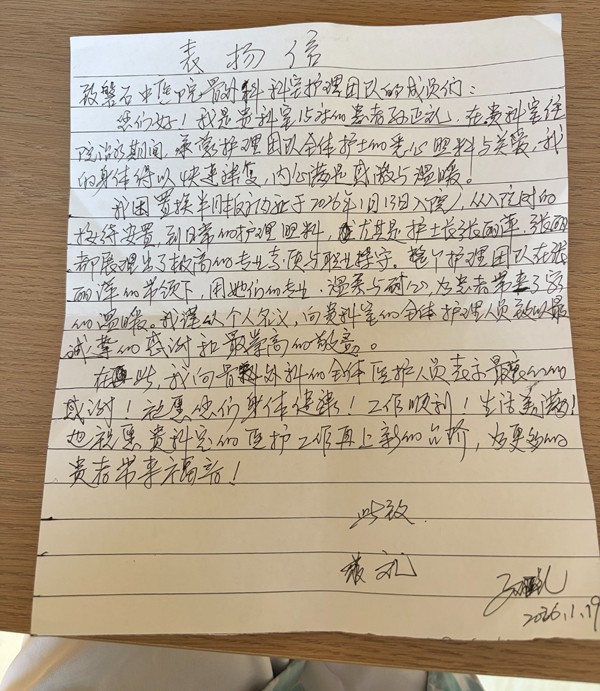 表扬信
致磐石中医院骨外科科室护理团队的成员们：
您们好！我是贵科室15床的患者孙正礼，在贵科室住
院治疗期间，承蒙护理团队全体护士的悉心照料与关爱，我
的身体得以快速康复，内心满是感激与温暖。
我因置换半月板功于2026年1月13日入院，从入院时的
接待安置，到日常的护理照料，尤其是护士长张丽萍，张丽
都展理出了极高的专业专项与职业操守。整个护理团队在张
丽萍的带领下，用她们的专业、温柔与耐心，为患者带来了家
的温暖。我谨以个人名义，向贵科室的全体护理人员致以最
诚挚的感谢和最崇高的敬意。
在此，我向骨外科的全体医护人员表示最衷心的
感谢！祝愿他们身体健康！工作顺利！生活美满！
也祝愿贵科室的医护工作再上新的台阶，为更多的
患者带来福音！
此致
敬礼
2026.1.19